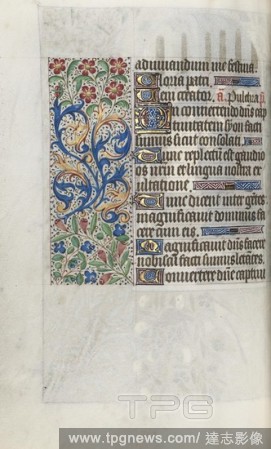 adiuvandum me festina.
Gloria patri.
equ creator. a. Pulchra p.
In convertendo dns cap
tivitatem syon facti
sumus sicut consolati.
Tunc repletum est gaudio
os nrm et lingua nostra ex
ultatione.
Tunc dicent inter gentes
magnificavit dominus fa
cere cum eis.
Magnificavit dns facere
nobiscum facti sumus letantes.
Converte dne captivi
TPG
www.tpgnews.com/ 達志影像